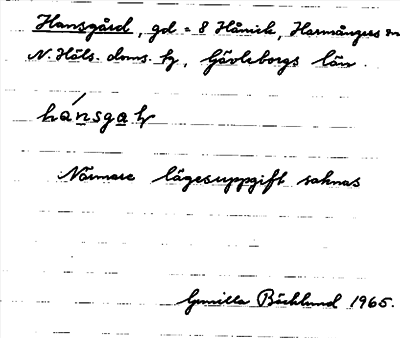 Hansgård, gd = 8 Hånick, Harmångers sn
N. Häls. doms. hd, Gävleborgs län.
hánsgaḷ
Närmare lägesuppgift saknas
Gunilla Bäcklund 1965.